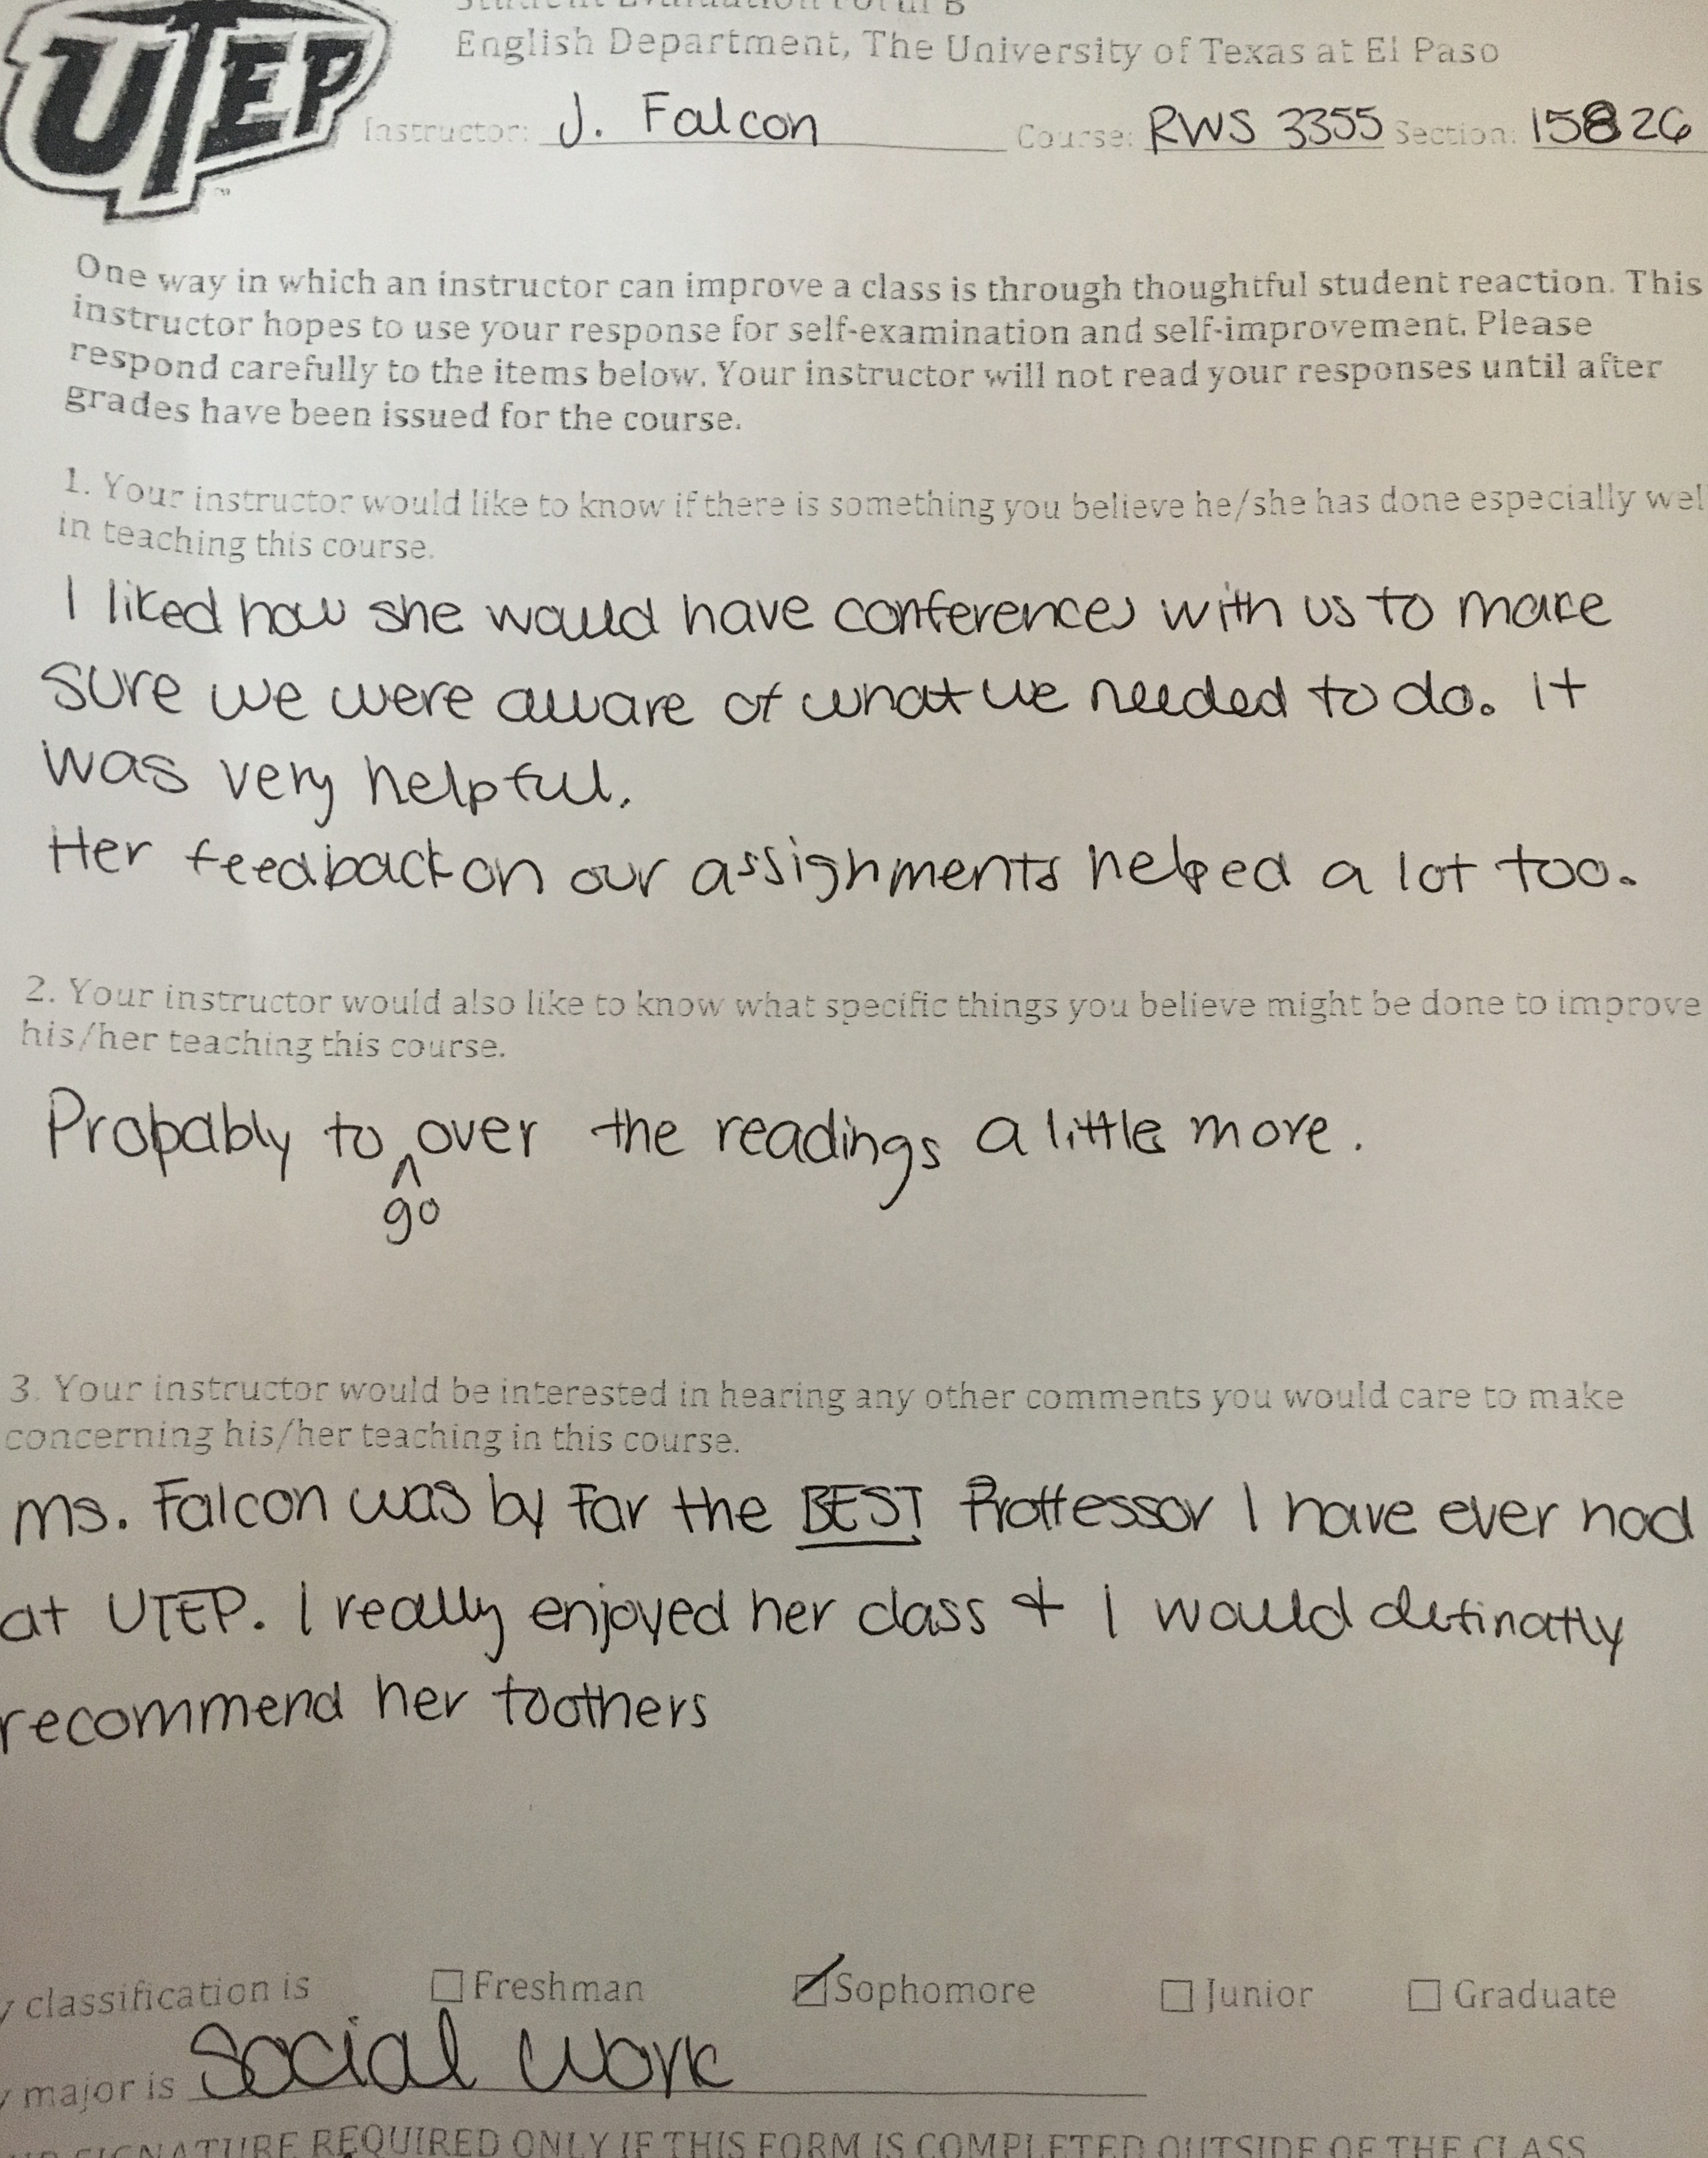 Student Evaluation Form B
UTEP
English Department, The University of Texas at El Paso
Instructor: J. Falcon Course: RWS 3355 Section: 15826
One way in which an instructor can improve a class is through thoughtful student reaction. This
instructor hopes to use your response for self-examination and self-improvement. Please
respond carefully to the items below. Your instructor will not read your responses until after
grades have been issued for the course.
1. Your instructor would like to know if there is something you believe he/she has done especially wel
in teaching this course.
I liked how she would have conferences with us to make
sure we were aware of what we needed to do. it
was very helpful.
Her feedback on our assignments helped a lot too.
2. Your instructor would also like to know what specific things you believe might be done to improve
his/her teaching this course.
Probably to ^ over the readings a little more.
go
3. Your instructor would be interested in hearing any other comments you would care to make
concerning his/her teaching in this course.
ms. Falcon was by far the BEST Proffessor I have ever had
at UTEP. I really enjoyed her class + I would definatly
recommend her to others
y classification is ☐ Freshman ☑ Sophomore ☐ Junior ☐ Graduate
y major is Social Work
SIGNATURE REQUIRED ONLY IF THIS FORM IS COMPLETED OUTSIDE OF THE CLASS